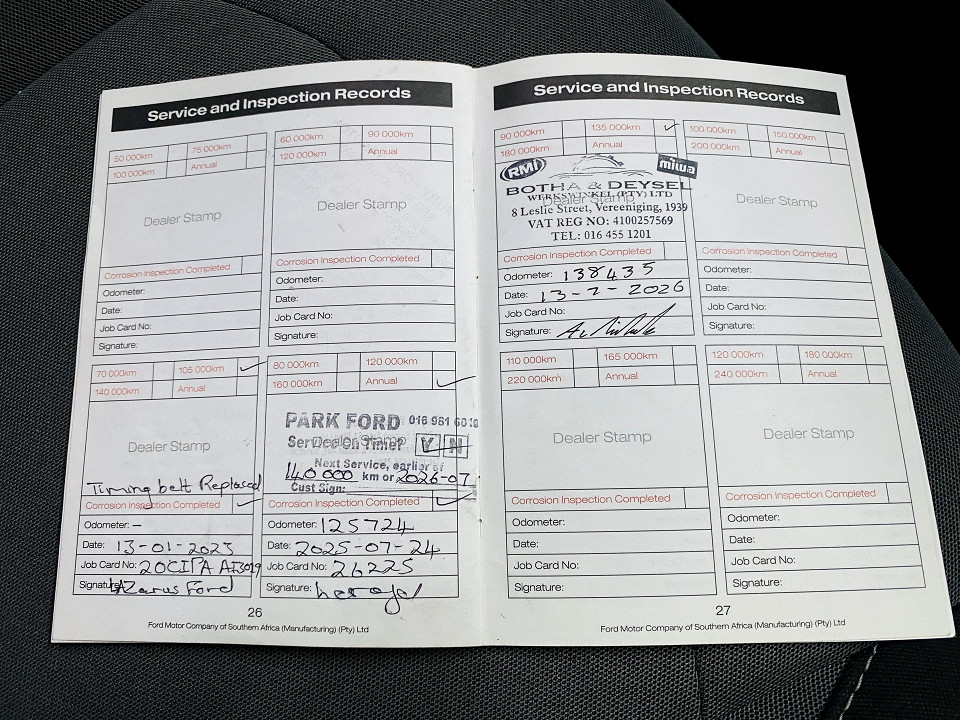 Service and Inspection Records
50 000km 75 000km
100 000km Annual
Dealer Stamp
Corrosion Inspection Completed
Odometer:
Date:
Job Card No:
Signature:
60 000km 90 000km
120 000km Annual
Dealer Stamp
Corrosion Inspection Completed
Odometer:
Date:
Job Card No:
Signature:
70 000km 105 000km
140 000km Annual
Dealer Stamp
Timing belt Replaced
Corrosion Inspection Completed
Odometer: –
Date: 13-01-2023
Job Card No:
Signature: Lazarus Ford
80 000km 120 000km
160 000km Annual
PARK FORD 016 981
Dealer Stamp
Service On Time? Y N
Next Service, earlier of
140 000 km or 2026-07
Cust Sign:
Corrosion Inspection Completed
Odometer: 125724
Date: 2025-07-24
Job Card No: 26225
Signature:
26
Ford Motor Company of Southern Africa (Manufacturing) (Pty) Ltd
Service and Inspection Records
90 000km 135 000km
180 000km Annual
RMI miwa
BOTHA & DEYSEL
Dealer Stamp
WERKSWINKEL (PTY) LTD
8 Leslie Street, Vereeniging, 1939
VAT REG NO: 4100257569
TEL: 016 455 1201
Corrosion Inspection Completed
Odometer: 138435
Date: 13-2-2026
Job Card No:
Signature:
100 000km 150 000km
200 000km Annual
Dealer Stamp
Corrosion Inspection Completed
Odometer:
Date:
Job Card No:
Signature:
110 000km 165 000km
220 000km Annual
Dealer Stamp
Corrosion Inspection Completed
Odometer:
Date:
Job Card No:
Signature:
120 000km 180 000km
240 000km Annual
Dealer Stamp
Corrosion Inspection Completed
Odometer:
Date:
Job Card No:
Signature:
27
Ford Motor Company of Southern Africa (Manufacturing) (Pty) Ltd